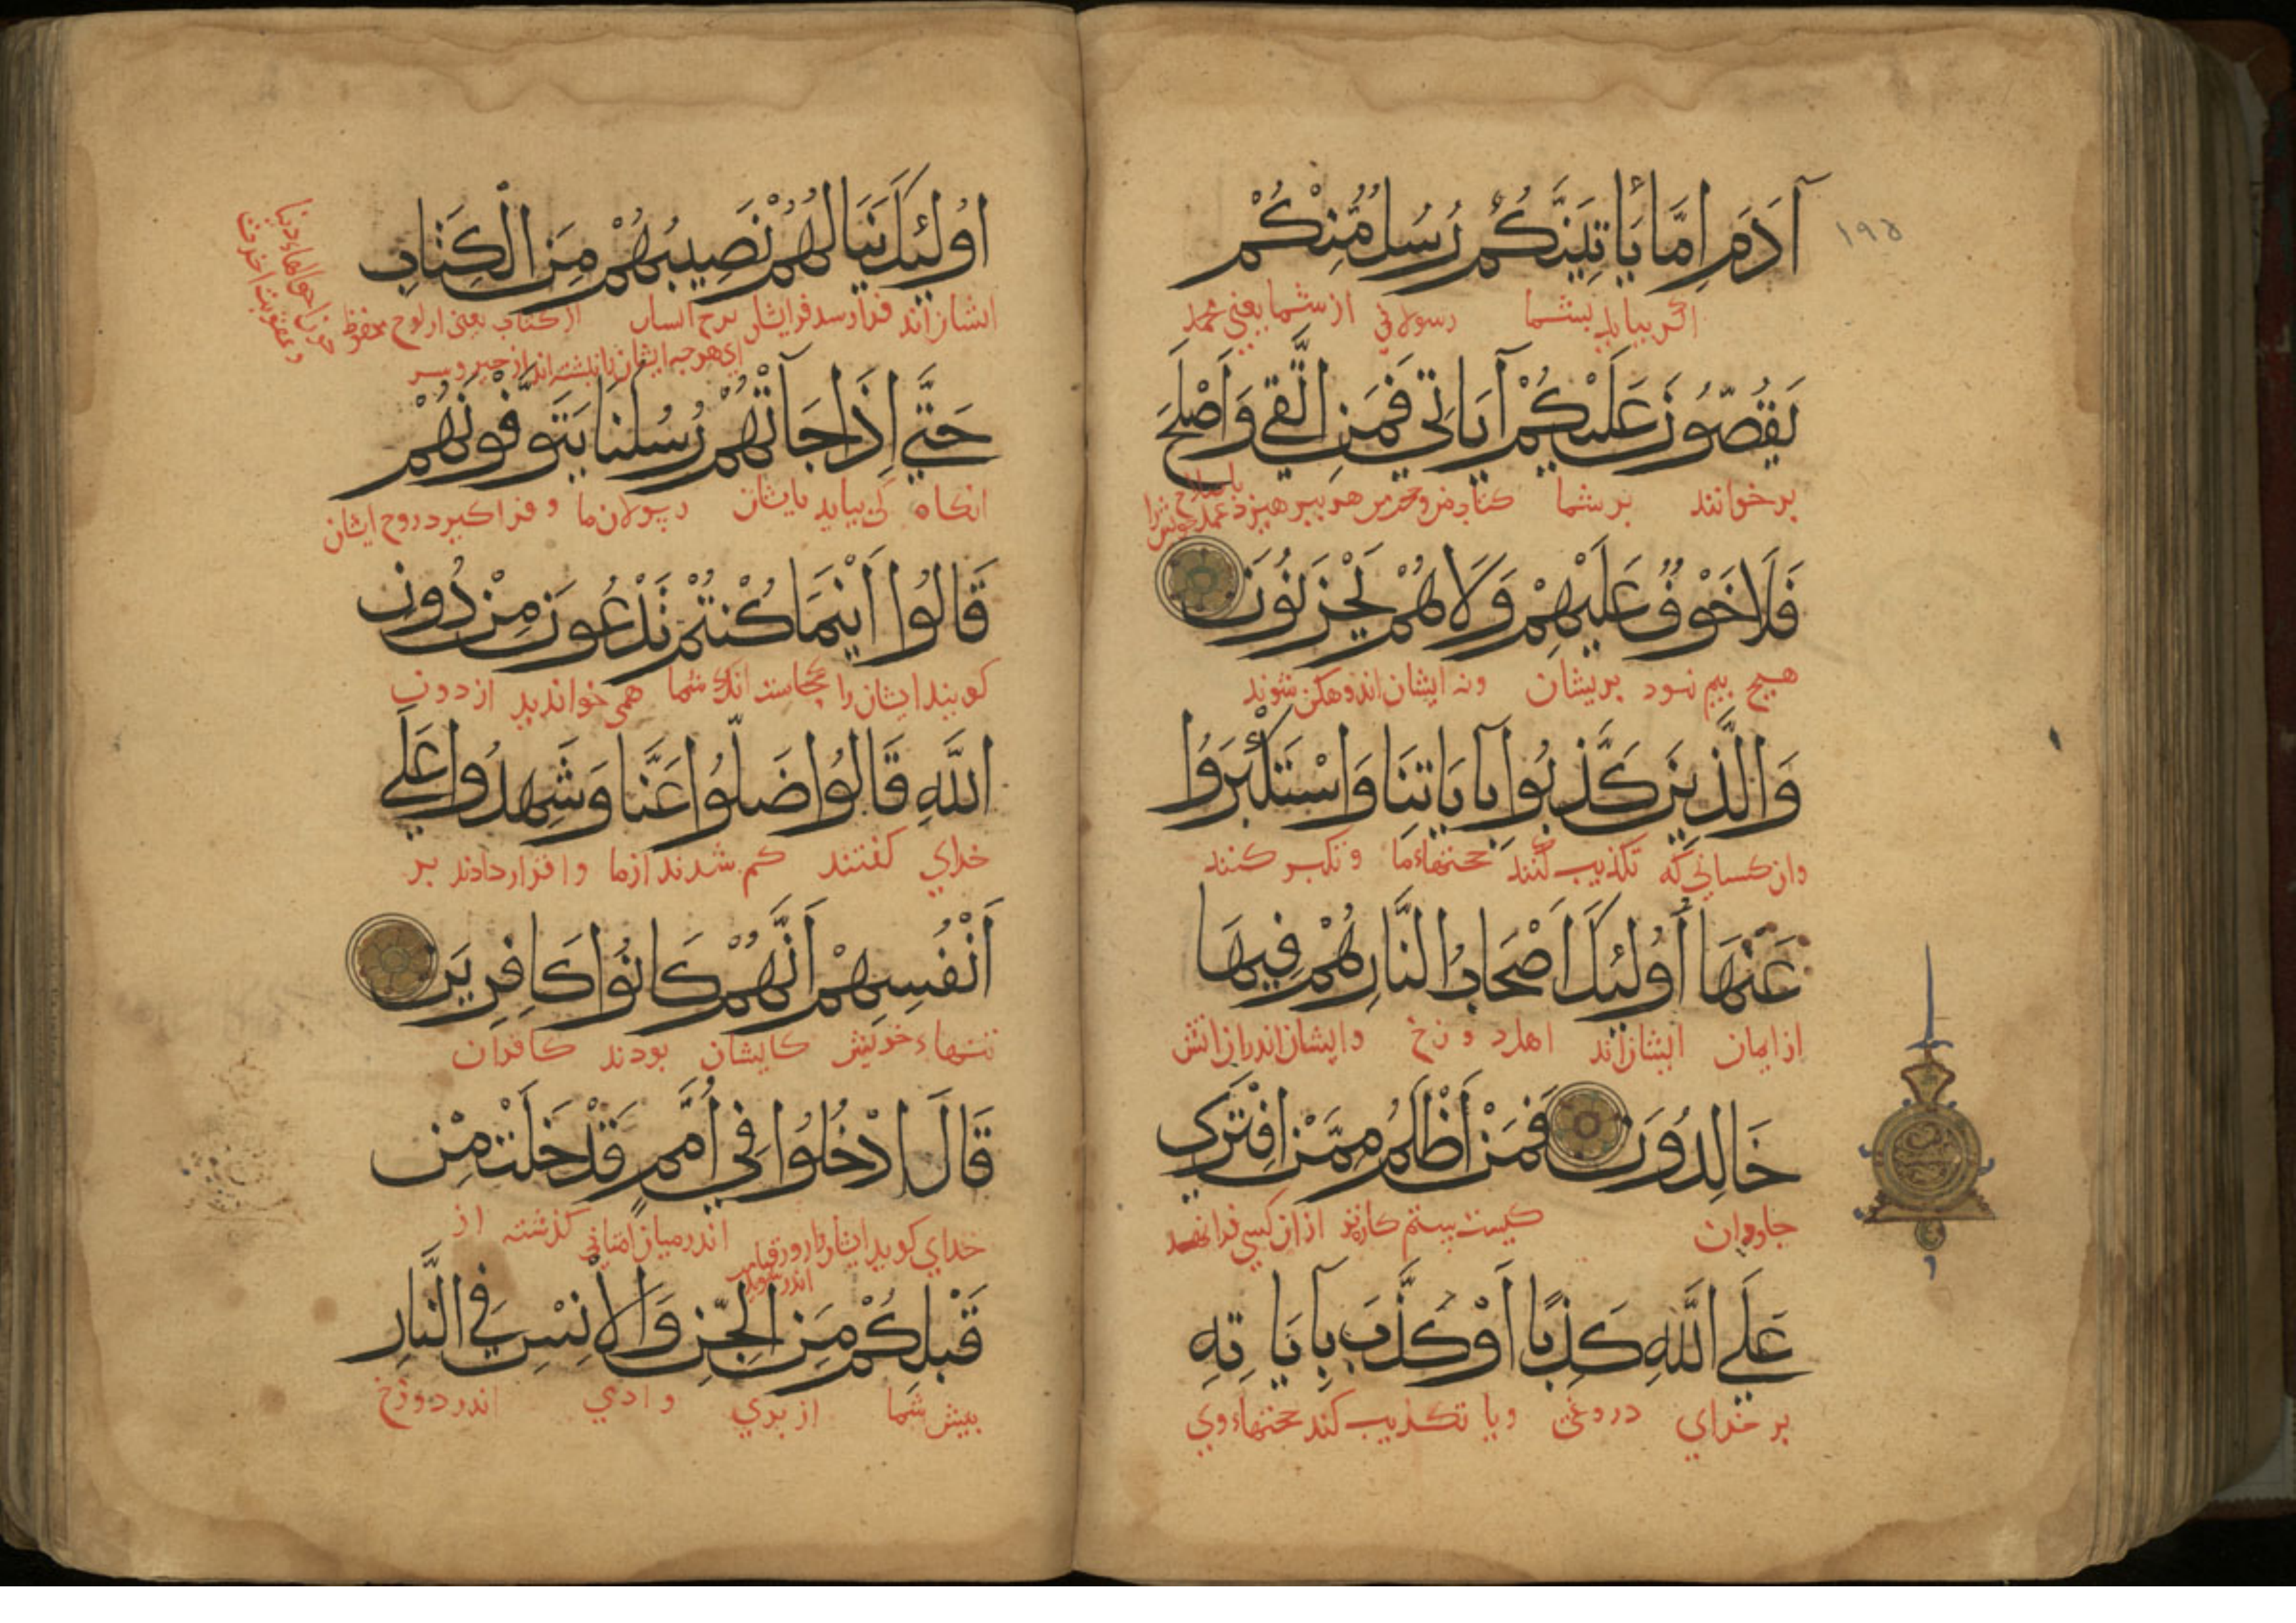 ١٩٥
آدَمَ اِمَّا يَأْتِيَنَّكُمْ رُسُلٌ مِّنْكُمْ
اگر بیاید بشما رسولانی از شما یعنی محمد
يَقُصُّونَ عَلَيْكُمْ آيَاتِي فَمَنِ اتَّقَي وَاَصْلَحَ
برخوانند بر شما کتاب من هر بپرهیزد
فَلَا خَوْفٌ عَلَيْهِمْ وَلَا هُمْ يَحْزَنُونَ
هیچ بیم نبود بریشان ونه ایشان اندوهکن شوند
وَالَّذِينَ كَذَّبُوا بِآيَاتِنَا وَاسْتَكْبَرُوا
وان کسانی که تکذیب کنند حجتهاء ما و تکبر کنند
عَنْهَا اُولٰئِكَ اَصْحَابُ النَّارِ هُمْ فِيهَا
از ایمان ایشان اند اهل دوزخ وایشان اندران اتش
خَالِدُونَ فَمَنْ اَظْلَمُ مِمَّنِ افْتَرَي
جاودان کیست ستم کارتر از ان کسی فرا
عَلَي اللَّهِ كَذِبًا اَوْ كَذَّبَ بِآيَاتِهِ
بر خدای دروغی ویا تکذیب کند حجتهاء وی
اُولٰئِكَ يَنَالُهُمْ نَصِيبُهُمْ مِنَ الْكِتَابِ
ایشان اند فرا رسد فرا ایشان از کتاب یعنی از لوح محفوظ
ای هر چه ایشان را نبشته اند از خیر و شر
حَتَّي اِذَا جَاءَتْهُمْ رُسُلُنَا يَتَوَفَّوْنَهُمْ
انکاه کی بیاید بایشان رسولان ما و فرا کیرد روح ایشان
قَالُوا اَيْنَمَا كُنْتُمْ تَدْعُونَ مِنْ دُونِ
کویند ایشان را کجاست انک شما همی خواندید از دون
اللَّهِ قَالُوا ضَلُّوا عَنَّا وَشَهِدُوا عَلَي
خدای کفتند کم شدند از ما و اقرار دادند بر
اَنْفُسِهِمْ اَنَّهُمْ كَانُوا كَافِرِينَ
تنهاء خویش کایشان بودند کافران
قَالَ ادْخُلُوا فِي اُمَمٍ قَدْ خَلَتْ مِنْ
خدای کوید ایشان را روز قیامت اندر میان امتانی کذشته از
اندر شوید
قَبْلِكُمْ مِنَ الْجِنِّ وَالْاِنْسِ فِي النَّارِ
پیش شما از پری و ادمی اندر دوزخ